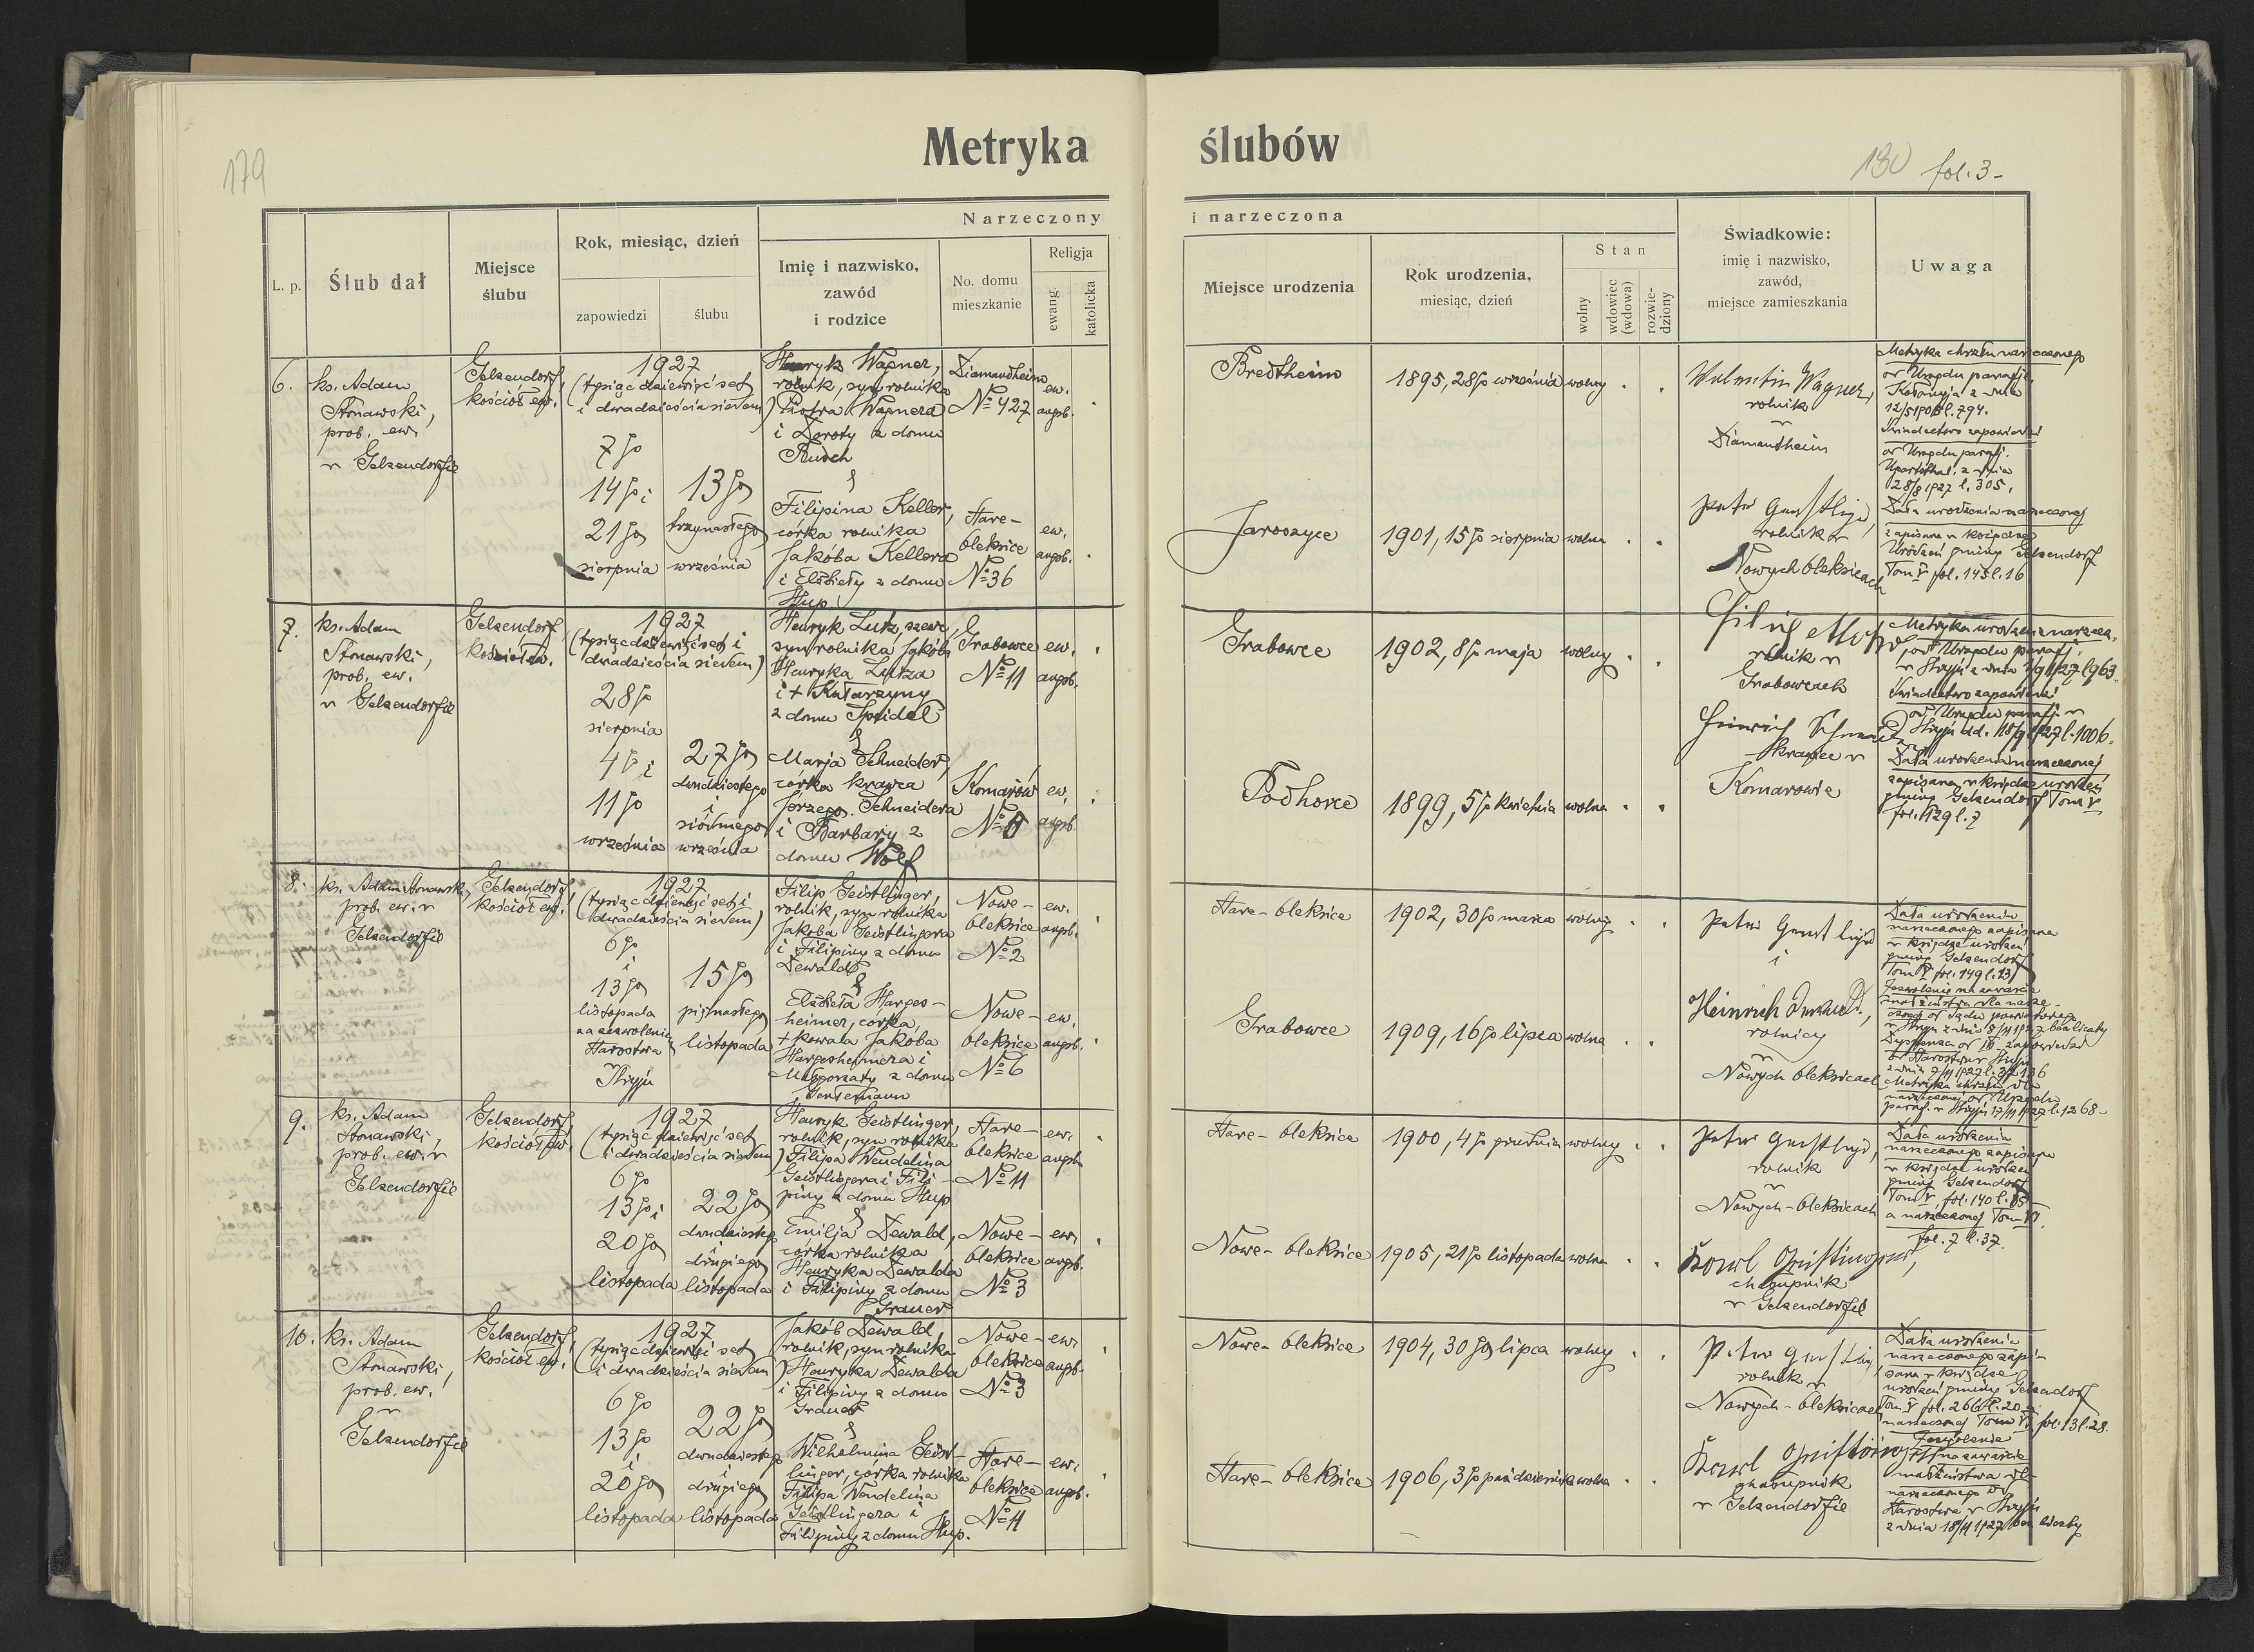 179
Metryka ślubów
180 fol. 3-
Narzeczony i narzeczona
L. p.
Ślub dał
Miejsce
ślubu
Rok, miesiąc, dzień
zapowiedzi
ślubu
Imię i nazwisko,
zawód
i rodzice
No. domu
mieszkanie
Religja
ewang.
katolicka
Miejsce urodzenia
Rok urodzenia,
miesiąc, dzień
Stan
wolny
wdowiec
(wdowa)
rozwie-
dziony
Świadkowie:
imię i nazwisko,
zawód,
miejsce zamieszkania
Uwaga
6.
ks. Adam
Stonawski,
prob. ew.
w Gelsendorfie
Gelsendorf,
kościół ew.
1927
(tysiąc dziewięćset
i dwadzieścia siedem)
7go
14go i
21go
sierpnia
13go
trzynastego
września
Henryk Wagner,
rolnik, syn rolnika
Piotra Wagnera
i Doroty z domu
&
Filipina Keller,
córka rolnika
Jakóba Kellera
i Elżbiety z domu
Hup
Diamandheim
No 427
ew.
augsb.
Stare-
Oleksice
No 36
ew.
augsb.
Bredtheim
1895, 28go września
wolny
Jaroszyce
1901, 15go sierpnia
wolna
Wagner,
rolnik
w
Diamandheim
rolnik w
Nowych Oleksicach
Metryka chrztu narzeczonego
od Urzędu parafj.
l. 794.
Świadectwo zapowiedzi
od Urzędu parafj.
z dnia
28/8 1927 l. 305.
Data urodzenia narzeczonej
zapisana w księdze
urodzeń gminy Gelsendorf
Tom V fol. 145 l. 16
7.
ks. Adam
Stonawski,
prob. ew.
w Gelsendorfie
Gelsendorf,
kościół ew.
1927
(tysiąc dziewięćset i
dwadzieścia siedem)
28go
sierpnia
4go i
11go
września
27go
dwudziestego
i
siódmego
września
Henryk Lutz, szewc,
syn rolnika Jakóba
Henryka Lutza
i + Katarzyny
z domu Speidel
&
Marja Schneider,
córka krawca
Jerzego Schneidera
i Barbary z
domu Wolf
Grabowce
No 11
ew.
augsb.
Komarów
ew.
augsb.
Grabowce
1902, 8go maja
wolny
Podhorce
1899, 5go kwietnia
wolna
rolnik w
Grabowcach
Heinrich
krawiec w
Komarowie
Metryka urodzenia narzecz.
od Urzędu parafj.
w Stryju z dnia
Świadectwo zapowiedzi
od Urzędu parafj. w
Stryju dd. 18/9 1927 l. 1006.
Data urodzenia narzeczonej
zapisana w księdze urodzeń
gminy Gelsendorf Tom V
fol. 129 l. 7
8.
ks. Adam Stonawski,
prob. ew. w
Gelsendorfie
Gelsendorf,
kościół ew.
1927
(tysiąc dziewięćset i
dwadzieścia siedem)
6go
i
13go
listopada
za zezwoleniem
Starostwa
Stryju
15go
piętnastego
listopada
Filip Geistlinger,
rolnik, syn rolnika
Jakóba Geistlingera
i Filipiny z domu
Dewald
&
Elżbieta Harges-
heimer, córka
+ kowala Jakóba
Hargesheimera i
Małgorzaty z domu
Gentemann
Nowe-
Oleksice
No 2
ew.
augsb.
Nowe-
Oleksice
No 6
ew.
augsb.
Stare-Oleksice
1902, 30go marca
wolny
Grabowce
1909, 16go lipca
wolna
i
Heinrich
rolnicy
w
Nowych Oleksicach
Data urodzenia
narzeczonego zapisana
w księdze urodzeń
gminy Gelsendorf
Tom V fol. 149 l. 13
Zezwolenie na zawarcie
małżeństwa dla narze-
czonej od Sądu powiatowego
w Stryju z dnia 8/11 1927 bez liczby
Dyspensa od III zapowiedzi
od Starostwa w Stryju
Metryka chrztu dla
narzeczonej od Urzędu
paraf. w Stryju 17/11 1927 l. 1268-
9.
ks. Adam
Stonawski,
prob. ew. w
Gelsendorfie
Gelsendorf,
kościół ew.
1927
(tysiąc dziewięćset
i dwadzieścia siedem)
6go
13go i
20go
listopada
22go
dwudziestego
i
drugiego
listopada
Henryk Geistlinger,
rolnik, syn rolnika
Filipa Wendelina
Geistlingera i Fili-
piny z domu Hup
&
Emilja Dewald,
córka rolnika
Henryka Dewalda
i Filipiny z domu
Grauer
Stare-
Oleksice
No 11
ew.
augsb.
Nowe-
Oleksice
No 3
ew.
augsb.
Stare-Oleksice
1900, 4go grudnia
wolny
Nowe-Oleksice
1905, 21go listopada
wolna
rolnik
w
Nowych-Oleksicach
chałupnik
w Gelsendorfie
Data urodzenia
narzeczonego zapisana
w księdze urodzeń
gminy Gelsendorf
Tom V, fol. 140 l.
a narzeczonej Tom VI
fol. 7 l. 37.
10.
ks. Adam
Stonawski,
prob. ew.
w
Gelsendorfie
Gelsendorf,
kościół ew.
1927
(tysiąc dziewięćset
i dwadzieścia siedem)
6go
13go
i
20go
listopada
22go
dwudziestego
i
drugiego
listopada
Jakób Dewald,
rolnik, syn rolnika
Henryka Dewalda
i Filipiny z domu
Grauer
&
Wilhelmina Geist-
linger, córka rolnika
Filipa Wendelina
Geistlingera i
Filipiny z domu Hup.
Nowe-
Oleksice
No 3
ew.
augsb.
Stare-
Oleksice
No 11
ew.
augsb.
Nowe-Oleksice
1904, 30go lipca
wolny
Stare-Oleksice
1906, 3go października
wolna
rolnik w
Nowych-Oleksicach
chałupnik
w Gelsendorfie
Data urodzenia
narzeczonego zapi-
sana w księdze
urodzeń gminy Gelsendorf
narzeczonej Tom VI fol. 13 l. 28.
Zezwolenie
na zawarcie
małżeństwa dla
narzeczonego od
Starostwa w Stryju
z dnia 18/11 1927 bez liczby